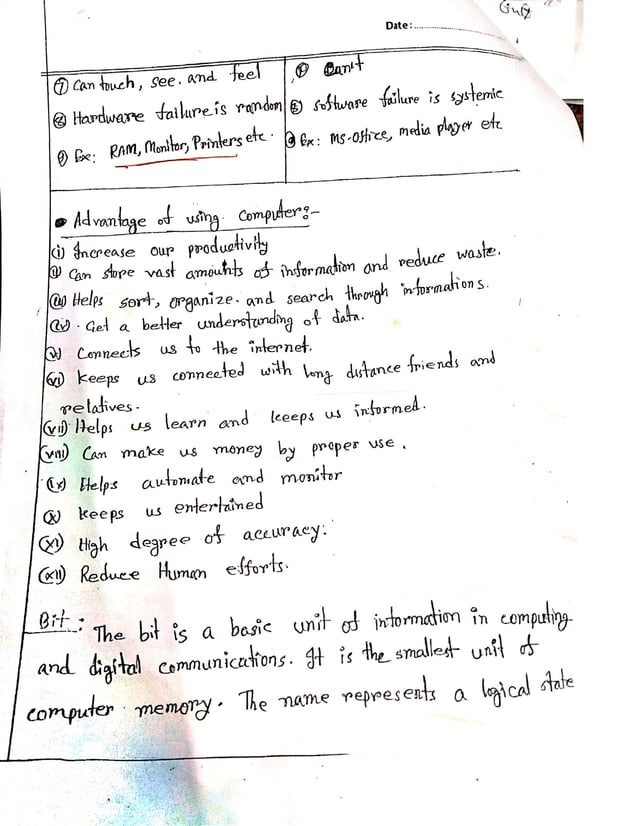 Date:
⑦ Can touch, see. and feel
⑦ Can't
⑧ Hardware failure is random
⑧ Software failure is systemic
⑨ Ex: RAM, Monitor, Printers etc.
⑨ Ex: MS-Ostice, media player etc
• Advantage of using Computer:-
(i) Increase our productivity
(ii) Can store vast amounts of information and reduce waste.
(iii) Helps sort, organize. and search through informations.
(iv). Get a better understanding of data.
(v) Connects us to the internet.
(vi) keeps us connected with long distance friends and
relatives.
(vii) Helps us learn and keeps us informed.
(viii) Can make us money by proper use.
(ix) Helps automate and monitor
(x) keeps us entertained
(xi) High degree of accuracy.
(xii) Reduce Human efforts.
Bit: The bit is a basic unit of information in computing
and digital communications. It is the smallest unit of
computer memory. The name represents a logical state